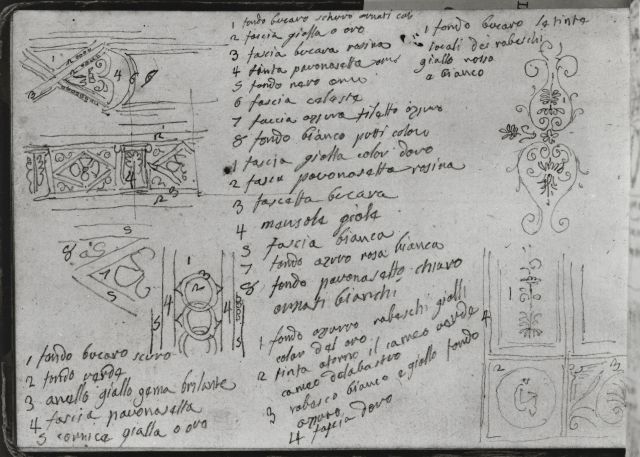 1 fondo bucaro schuro ornati cob
2 fascia gialla o oro
3 fascia bucara rosina
4 tinta pavonasetta
5 fondo nero
6 fascia celeste
7 faccia azzura filetto azzuro
8 fondo bianco putti coloro
1 fascia gialla color doro
2 fascia pavonasetta rosina
3 fascetta bucara
4 mensole giole
5 fascia bianca
7 fondo azuro rosa bianca
8 fondo pavonasetto chiaro
ornati bianchi
1 fondo azzurro rabeschi gialli
color del oro
2 tinta atorno il cameo verde
cameo delabastro
3 rabesco bianco e giallo fondo
azzuro
4 fascia doro
1 fondo bucaro le tinte
locali dei rabeschi
giallo rosso
e bianco
1 fondo bucaro scuro
2 fondo verde
3 anello giallo gema brilante
4 fascia pavonasetta
5 cornice gialla o oro